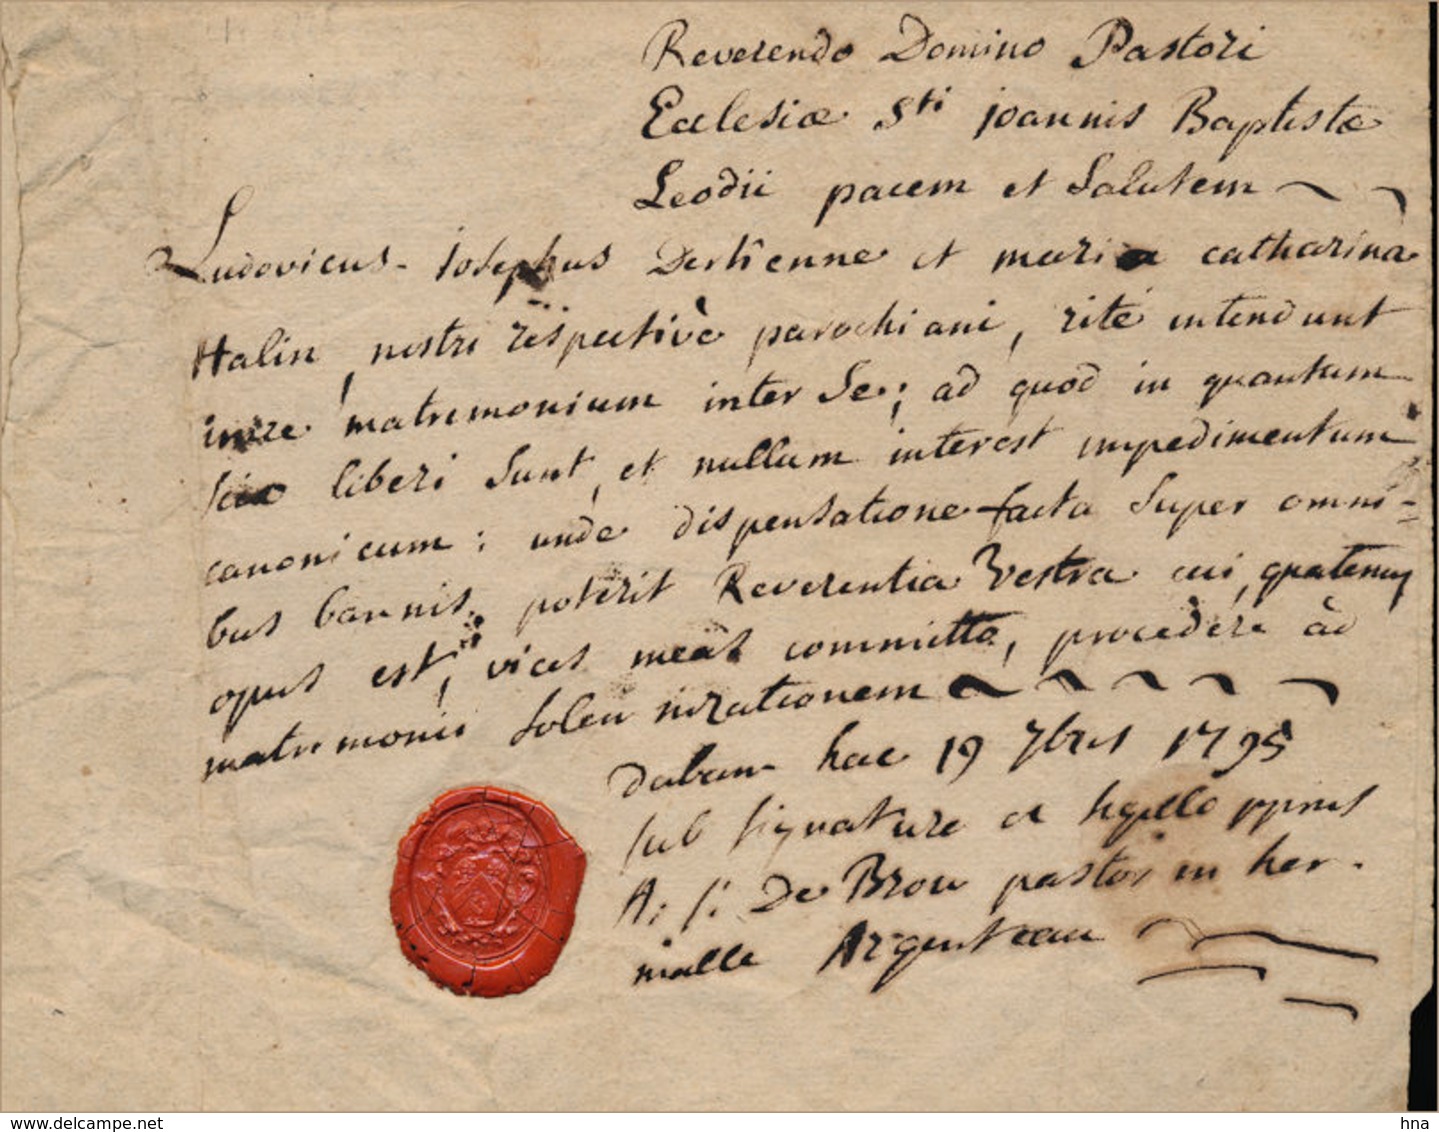 Reverendo Domino Pastori
Ecclesiæ Sti joannis Baptistæ
Leodii pacem et Salutem
Ludovicus Josephus Destienne et maria catharina
Halin, nostri respectivè parochiani, rité intendunt
inire matrimonium inter Se; ad quod in quantum
scio liberi Sunt, et nullum interest impedimentum
canonicum: unde dispensatione facta Super omni=
bus bannis, poterit Reverentia Vestra cui, quatenus
opus est, vices meas committo, procedere àd
matrimonii Solemnizationem
Dabam hac 19 7bris 1795
sub signature et sigillo ppriis
A: J: De Brou pastor in her-
malle Argenteau
www.delcampe.net
hna